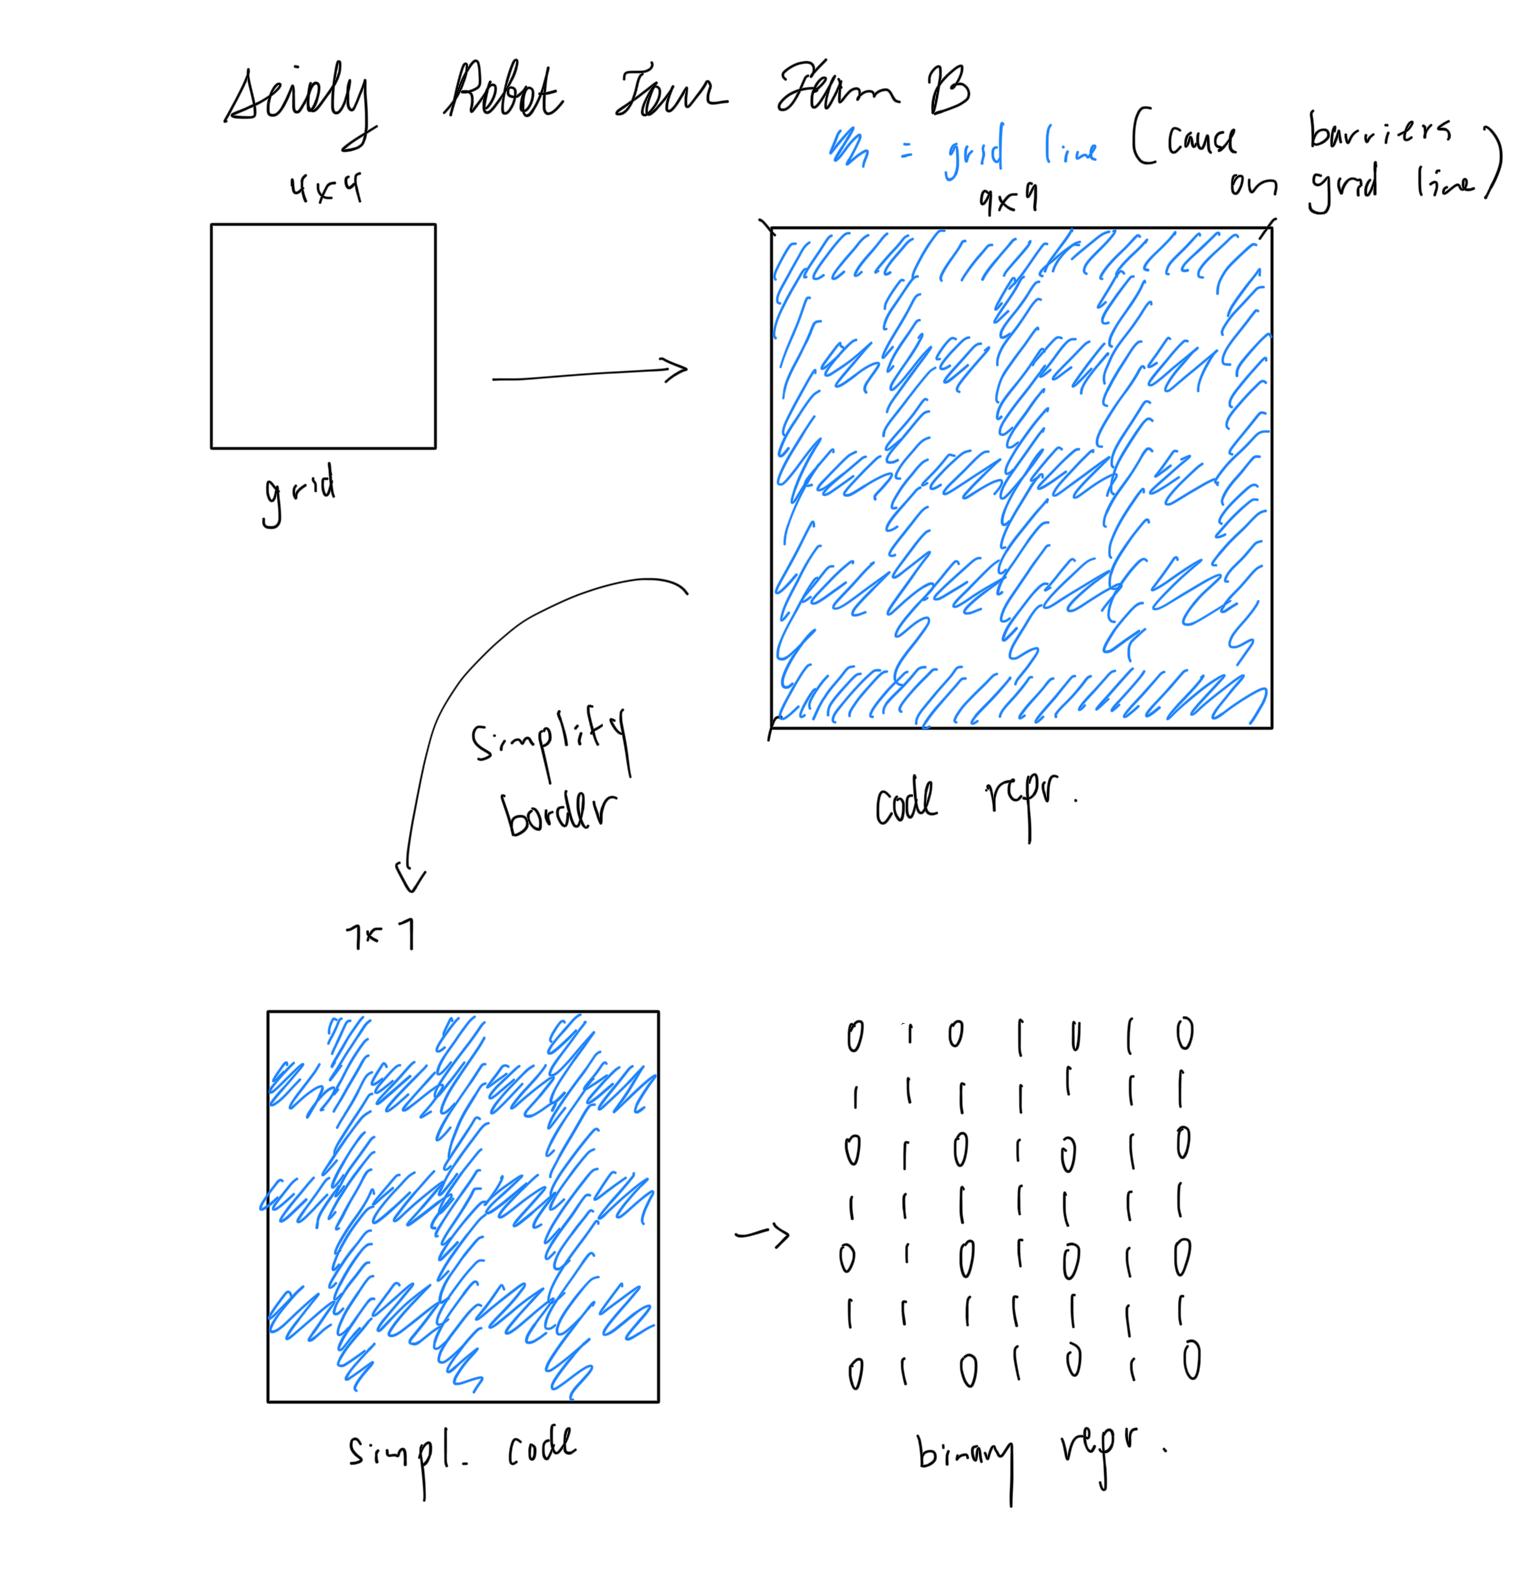 Scioly Robot Tour Team B
= grid line (cause barriers
on grid line)
4x4
9x9
grid
code repr.
simplify
border
7x7
0 1 0 1 0 1 0
1 1 1 1 1 1 1
0 1 0 1 0 1 0
1 1 1 1 1 1 1
0 1 0 1 0 1 0
1 1 1 1 1 1 1
0 1 0 1 0 1 0
simpl. code
binary repr.